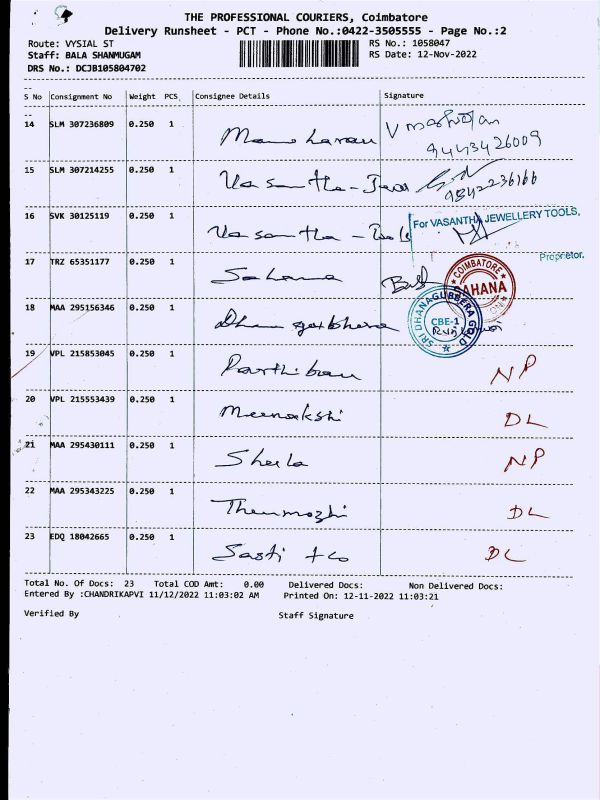 THE PROFESSIONAL COURIERS, Coimbatore
Delivery Runsheet - PCT - Phone No.:0422-3505555 - Page No.:2
Route: VYSIAL ST RS No.: 1058047
Staff: BALA SHANMUGAM RS Date: 12-Nov-2022
DRS No.: DCJB105804702
S No Consignment No Weight PCS Consignee Details Signature
14 SLM 307236809 0.250 1 Manoharan V
9443426009
15 SLM 307214255 0.250 1 Vasantha-
9842236166
16 SVK 30125119 0.250 1 Vasantha -
For VASANTHA JEWELLERY TOOLS,
Proprietor.
17 TRZ 65351177 0.250 1 Sahana
COIMBATORE
SAHANA
18 MAA 295156346 0.250 1
SRI DHANAGUBBERA GOLD
CBE-1
19 VPL 215853045 0.250 1 Parthiban NP
20 VPL 215553439 0.250 1 Meenakshi DL
21 MAA 295430111 0.250 1 Sheela NP
22 MAA 295343225 0.250 1 Thenmozhi DL
23 EDQ 18042665 0.250 1 Sasti + Co DL
Total No. Of Docs: 23 Total COD Amt: 0.00 Delivered Docs: Non Delivered Docs:
Entered By :CHANDRIKAPVI 11/12/2022 11:03:02 AM Printed On: 12-11-2022 11:03:21
Verified By Staff Signature